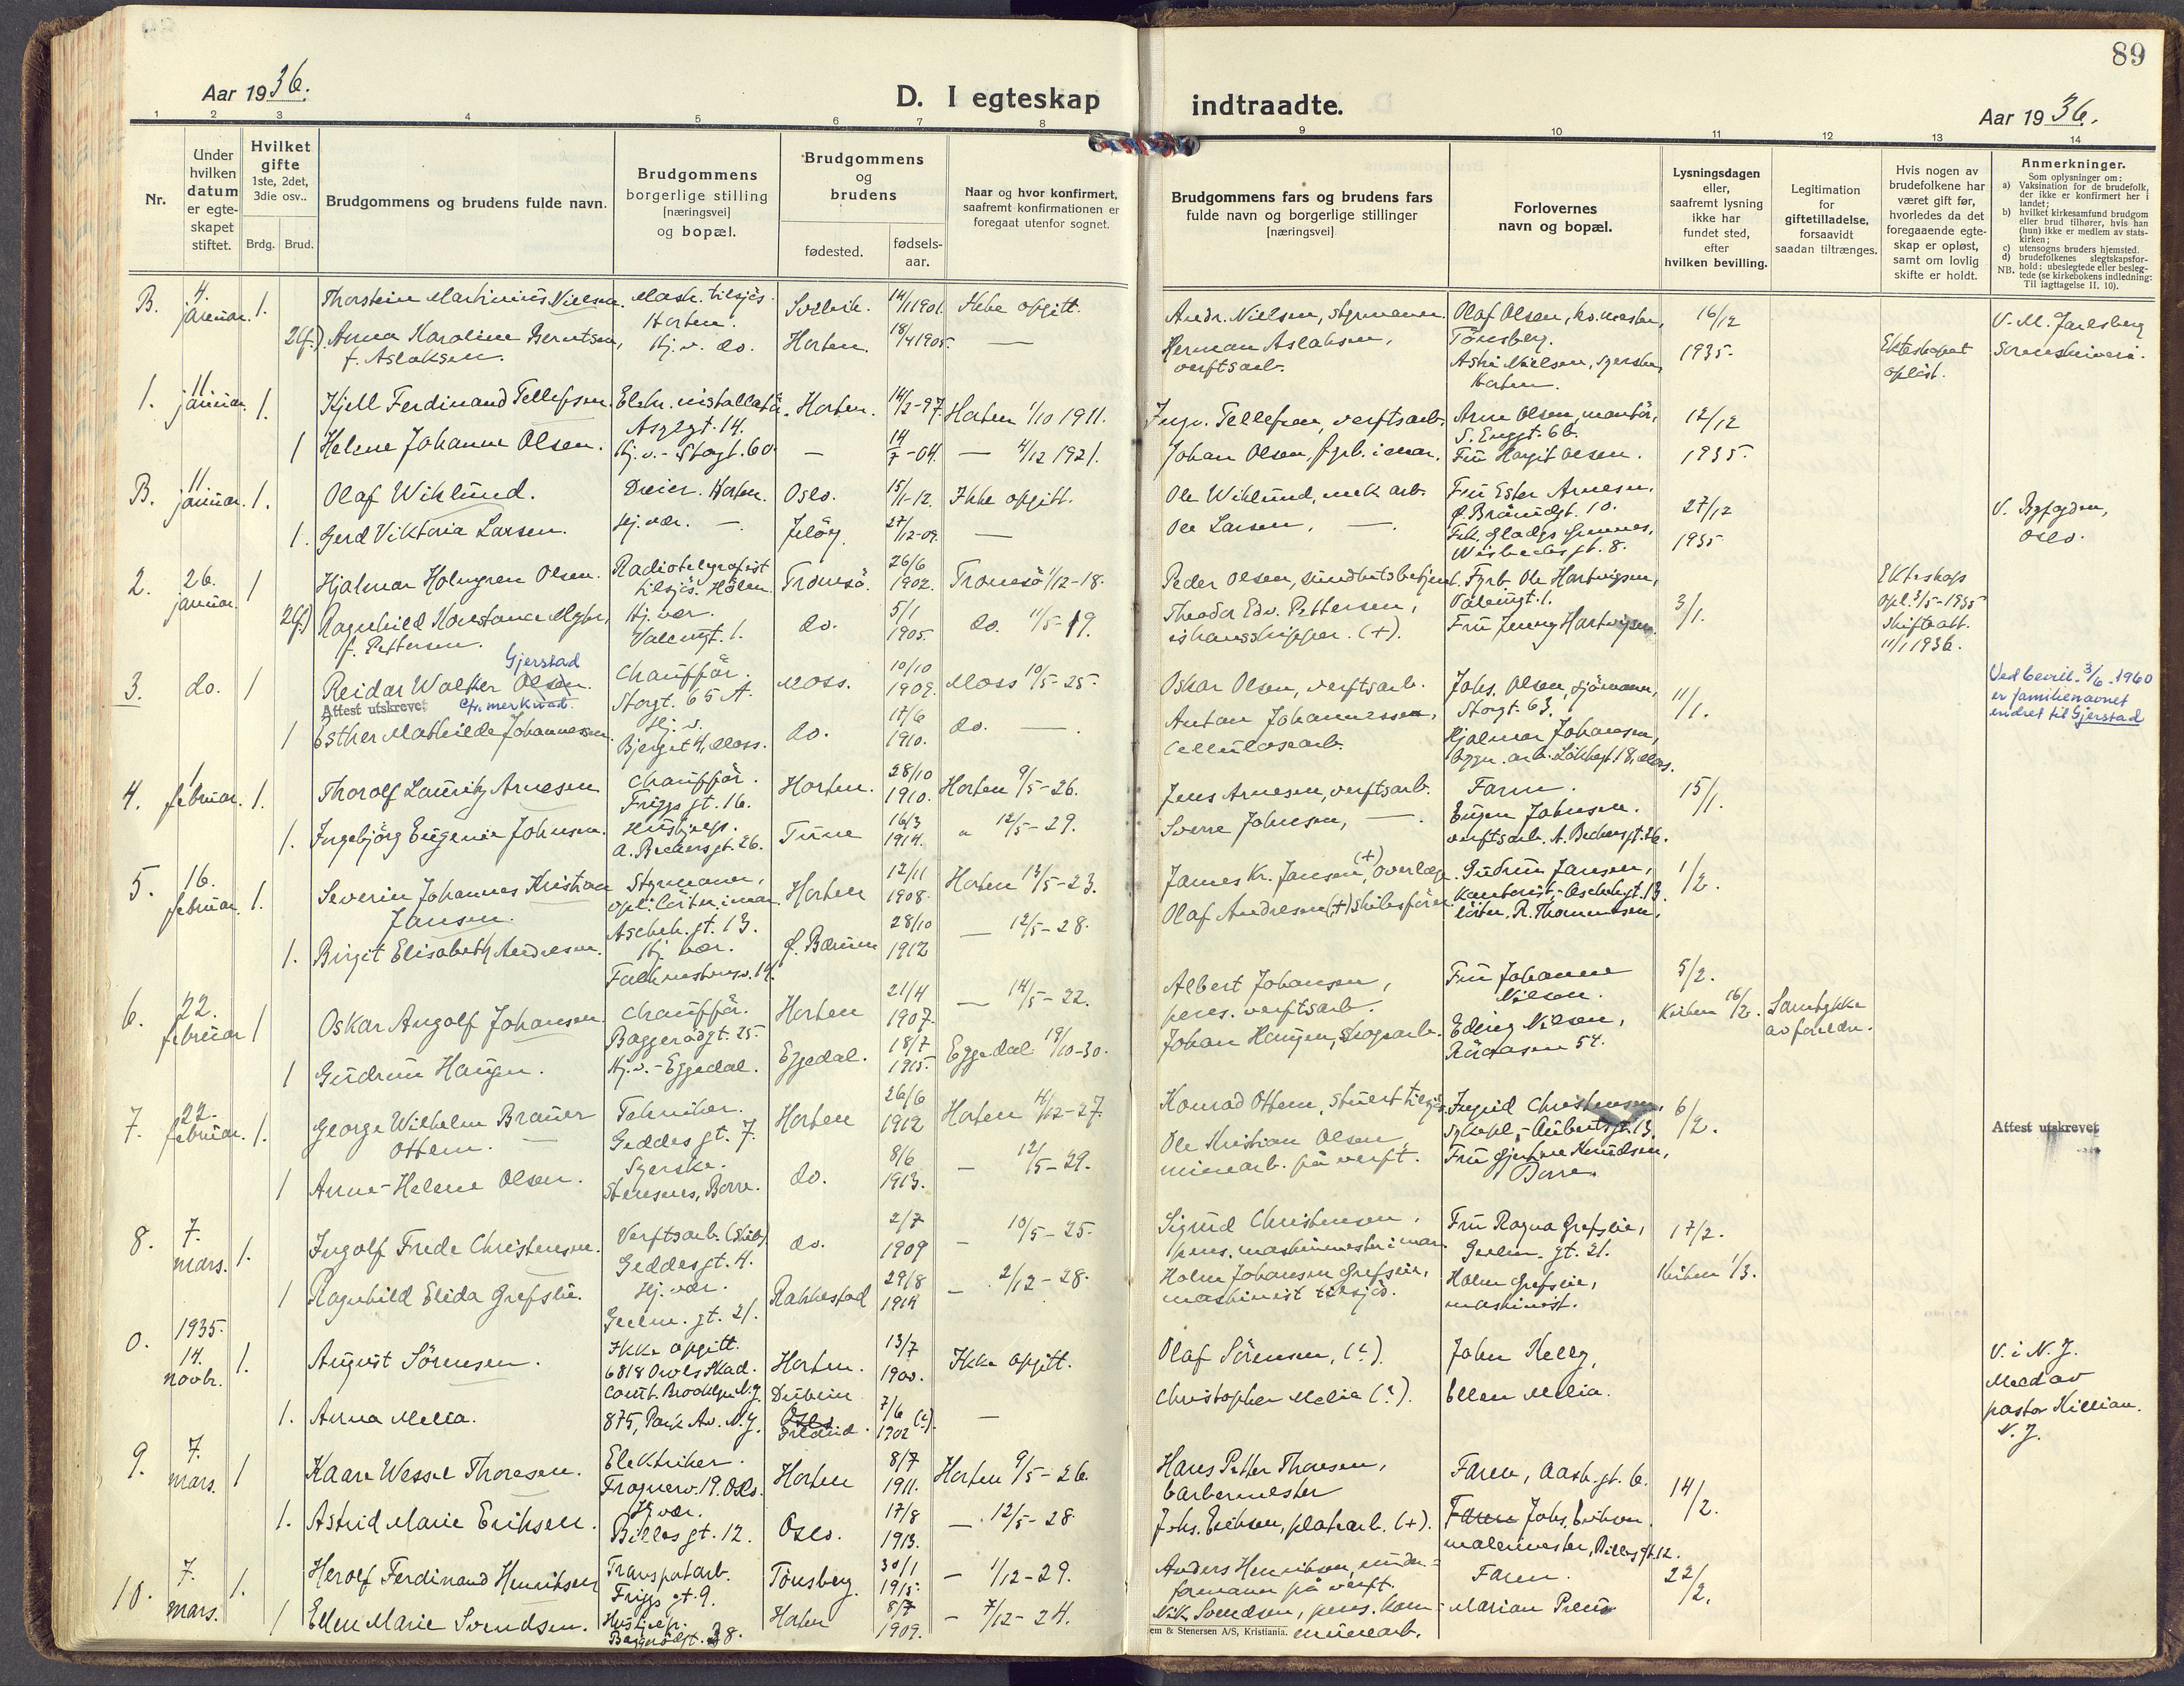 89
Aar 1936.
D. I egteskap indtraadte.
Aar 1936.
1 2 3 4 5 6 7 8 9 10 11 12 13 14
Nr.
Under hvilken datum er egte- skapet stiftet.
Hvilket gifte 1ste, 2det, 3die osv..
Brdg. Brud.
Brudgommens og brudens fulde navn.
Brudgommens borgerlige stilling [næringsvei] og bopæl.
Brudgommens og brudens
fødested.
fødsels- aar.
Naar og hvor konfirmert, saafremt konfirmationen er foregaat utenfor sognet.
Brudgommens fars og brudens fars fulde navn og borgerlige stillinger [næringsvei]
Forlovernes navn og bopæl.
Lysningsdagen eller, saafremt lysning ikke har fundet sted, efter hvilken bevilling.
Legitimation for giftetilladelse, forsaavidt saadan tiltrænges.
Hvis nogen av brudefolkene har været gift før, hvorledes da det foregaaende egte- skap er opløst, samt om lovlig skifte er holdt.
Anmerkninger.
Som oplysninger om:
a) Vaksination for de brudefolk, der ikke er konfirmert her i landet;
b) hvilket kirkesamfund brudgom eller brud tilhører, hvis han (hun) ikke er medlem av stats- kirken;
c) utensogns bruders hjemsted.
d) brudefolkenes slegtskapsfor- hold: ubeslegtede eller besleg- tede (se kirkebokens indledning: Til iagttagelse II, 10).
NB.
B. 4. januar. 1. Thorstein Martinius Nielsen. Mask. tilsjøs. Horten. Svelvik. 14/1 1901. Ikke opgitt. Andr. Nielsen, styrmann. Olaf Olsen, Tønsberg. 16/12 1935. V. M. Jarlsberg Sorenskriveri.
2(f.) Anna Karoline Berntsen, f. Aslaksen. Hj. v. do. Horten. 18/4 1905. — Herman Aslaksen, verftsarb. Nielsen, Horten. Ekteskapet opløst.
1. 11. januar. 1. Kjell Ferdinand Tellefsen. Elektr. installatør. Aspegt. 14. Horten. 14/2-97. Horten 1/10 1911. Ingv. Tellefsen, verftsarb. Arne Olsen, montør, 12/12 1935.
1 Helene Johanne Olsen. Hj. v. - Storgt. 60. — 14/7-04. — 4/12 1921. Johan Olsen, fyrb. i mar. Fru Margit Olsen.
B. 11. januar. 1. Olaf Wiklund. Dreier. Horten. Oslo. 15/1-12. Ikke opgitt. Ole Wiklund, mek arb. Fru Ester Arnesen. 27/12 1935 V. Byfogden, Oslo.
1. Gerd Viktoria Larsen. Hj. vær. — Jeløy. 27/12-09. — Ole Larsen, —. Frk. Gladys
2. 26. januar. 1 Hjalmar Holmgren Olsen. Radiotelegrafist tilsjøs. Hølen. Tromsø. 26/6 1902. Tromsø 1/12-18. Peder Olsen, sundhetsbetjent. Fyrb. Ole Hartvigsen, 3/1. Ekteskap opl. 3/5-1935 skifteatt. 11/1 1936.
2(f) Ragnhild Konstance Myhr, f. Pettersen. Hj. vær. do. 5/1 1905. do. 11/5-19. Theodor Edv. Pettersen, ishavsskipper. (+). Fru Jenny Hartvigsen.
3. do. 1 Reidar Walker Olsen. Gjerstad Attest utskrevet Cfr. merknad. Chauffør. Storgt. 65 A. Moss. 10/10 1909. Moss 10/5-25. Oskar Olsen, verftsarb. Johs. Olsen, sjømann, Storgt. 63. 11/1. Ved bevill. 3/6-1960 er familienavnet endret til Gjerstad
1 Esther Mathilde Johannessen. Hj. v. Bjergt 4, Moss. do. 17/6 1910. do. — Anton Johannessen, cellulosearb. Hjalmar Johansen,
4. 1 februar. 1. Thorolf Lauritz Arnesen Chauffør. Friggs gt. 16. Horten. 28/10 1910. Horten 9/5-26. Jens Arnesen, verftsarb. Faren. 15/1.
1. Ingebjørg Eugenie Johnsen. Hushjelp. A. Beckersgt. 26. Tune 16/3 1914. " 12/5-29. Sverre Johnsen, —. Eugen Johnsen. verftsarb. A. Beckersgt. 26.
5. 16. februar. 1. Severin Johannes Kristian Jansen. Styrmann, Ascheh. gt. 13. Horten 12/11 1908. Horten 13/5-23. James Kr. Jansen, (+) Gudrun Jansen, kontorist, - Aschehgt. 13 1/2.
1. Birgit Elisabeth Andresen. Hj. vær. Falkenstensv. 14. Ø. Bærum 28/10 1912 — 12/5-28. Olaf Andresen (+) skibsfører R. Thommesen,
6. 22. februar 1 Oskar Angolf Johansen. Chauffør. Baggerødgt. 25. Horten 21/4 1907. — 14/5-22. Albert Johansen, pens. verftsarb. Fru Johanne Nilsen. 5/2. Kirken 16/2. Samtykke av foreldre.
1 Gudrun Haugen. Hj. v. - Eggedal. Eggedal. 18/7 1915. Eggedal 19/10-30. Johan Haugen, skogsarb. Nilsen, 54.
7. 22. februar. 1. George Wilhelm Brauer Ottem. — Tekniker. Geddes gt. 7. Horten 26/6 1912 Horten 4/12-27. Konrad Ottem, stuert tilsjøs. Ingrid Christensen, 6/2. Attest utskrevet
1 Anne-Helene Olsen. Syerske. Stensnes, Borre. do. 8/6 1913. — 12/5-29. Ole Kristian Olsen, minearb. på verft. Fru Gjertrine Knudsen, Borre.
8. 7. mars. 1. Ingolf Frede Christensen. Verftsarb. (Skib) Geddesgt. 4. do. 2/7 1909 — 10/5-25. Sigurd Christensen, pens. maskinmester i mar. Fru Ragna Grefslie, 17/2. Kirken 1/3.
1 Ragnhild Elida Grefslie. Hj. vær. gt. 21. Rakkestad 29/8 1914 — 2/12-28. Holm Johansen Grefslie, maskinist tilsjøs. Holm Grefslie, maskinist.
0. 1935. 14. novbr. 1. August Sørensen. Ikke opgitt. 6818 Court. Brooklyn N.Y. Horten. 13/7 1900. Ikke opgitt. Olaf Sørensen, (?). John Kelly, V. i N.Y. Meld av pastor Killian. N.Y.
1. Anna Melia. 875, Park Av. N.Y. Dublin Irland. 7/6 1902 (?). — Christopher Melia (?). Ellen Melia.
9. 7. mars. 1 Kaare Wessel Thoresen. Elektriker. Frognerv. 19. Oslo. Horten 8/7 1911. Horten 9/5-26. Hans Petter Thoresen, barbermester Faren, Aasb. gt. 6. 14/2.
1. Astrid Marie Eriksen. Hj. vær. Billes gt. 12. Oslo. 17/8 1913. — 12/5-28. Johs. Eriksen, platearb. (+). Faren Johs. Eriksen. malermester, Billesgt. 12.
10. 7. mars. 1. Herolf Ferdinand Henriksen Transportarb. Friggs gt. 9. Tønsberg. 30/1 1915. — 1/12-29. Anders Henriksen, under- formann på verft. Faren. 22/2.
1 Ellen Marie Svendsen. Hushjelp. Baggerødgt. 38. Horten 8/7 1909. — 7/12-24. Nik. Svendsen, pens. kom- munearb. Marian
em & Stenersen A/S, Kristiania.